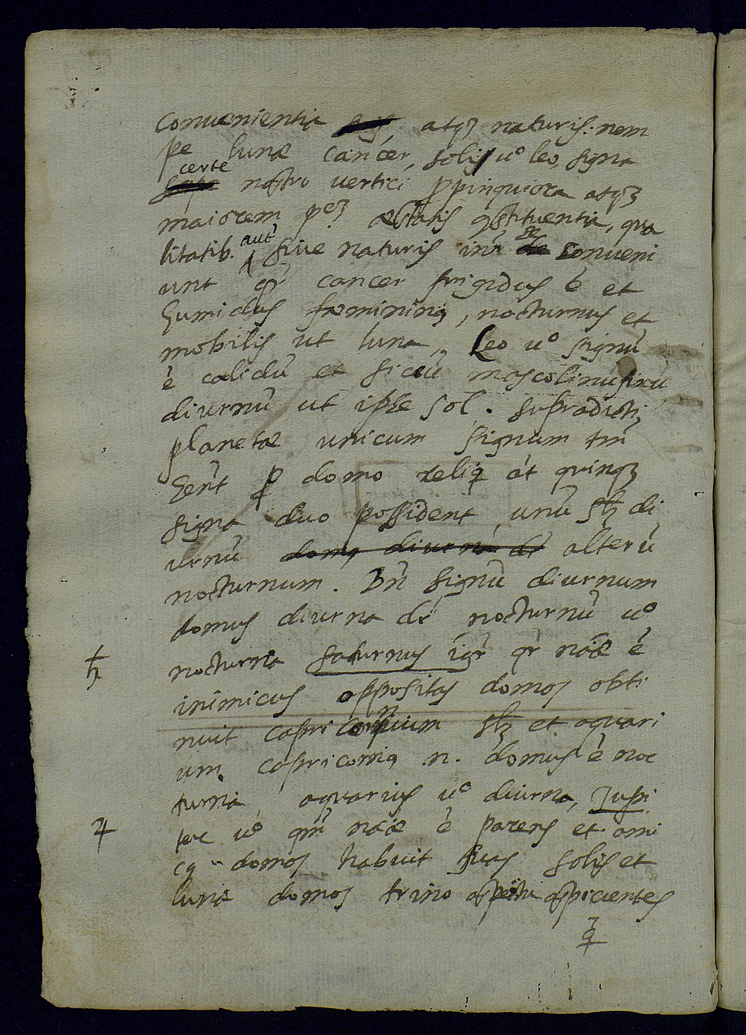 conuenientia atqȝ naturis: nem
pe lunæ cancer, solis u° leo, signa
certe
nostro vertici ppinquiora atqȝ
maiorem peȝ æstatis ɔstituentia, qua
litatib. aut̃ siue naturis int̃ se conueni
unt qr̃ cancer frigidus ẽ et
humidus fœmininꝰ, nocturnus et
mobilis ut luna, Leo u° signũ
ẽ calidũ et siccũ masculinũ
diurnũ ut ipse sol. supradicti
planetæ unicum signum tm̃
hent̃ p domo reliq̃ at̃ quinqȝ
signa duo possident, unũ sȝ di
urnũ domꝰ diurna dr̃ alterũ
nocturnum. Dñ signũ diurnum
domus diurna dr̃ nocturnũ u°
♄
nocturna saturnus igr̃ qr̃ naæ̃ ẽ
inimicus oppositas domos obti
nuit capricornium sȝ et aquari
um. capricornꝰ n. domus ẽ noc
turna, aquarius u° diurna, Jupi
♃
ter u° qm̃ naæ̃ ẽ parens et ami
cꝰ domos habuit suas solis et
lunæ domos trino aspectu aspicientes